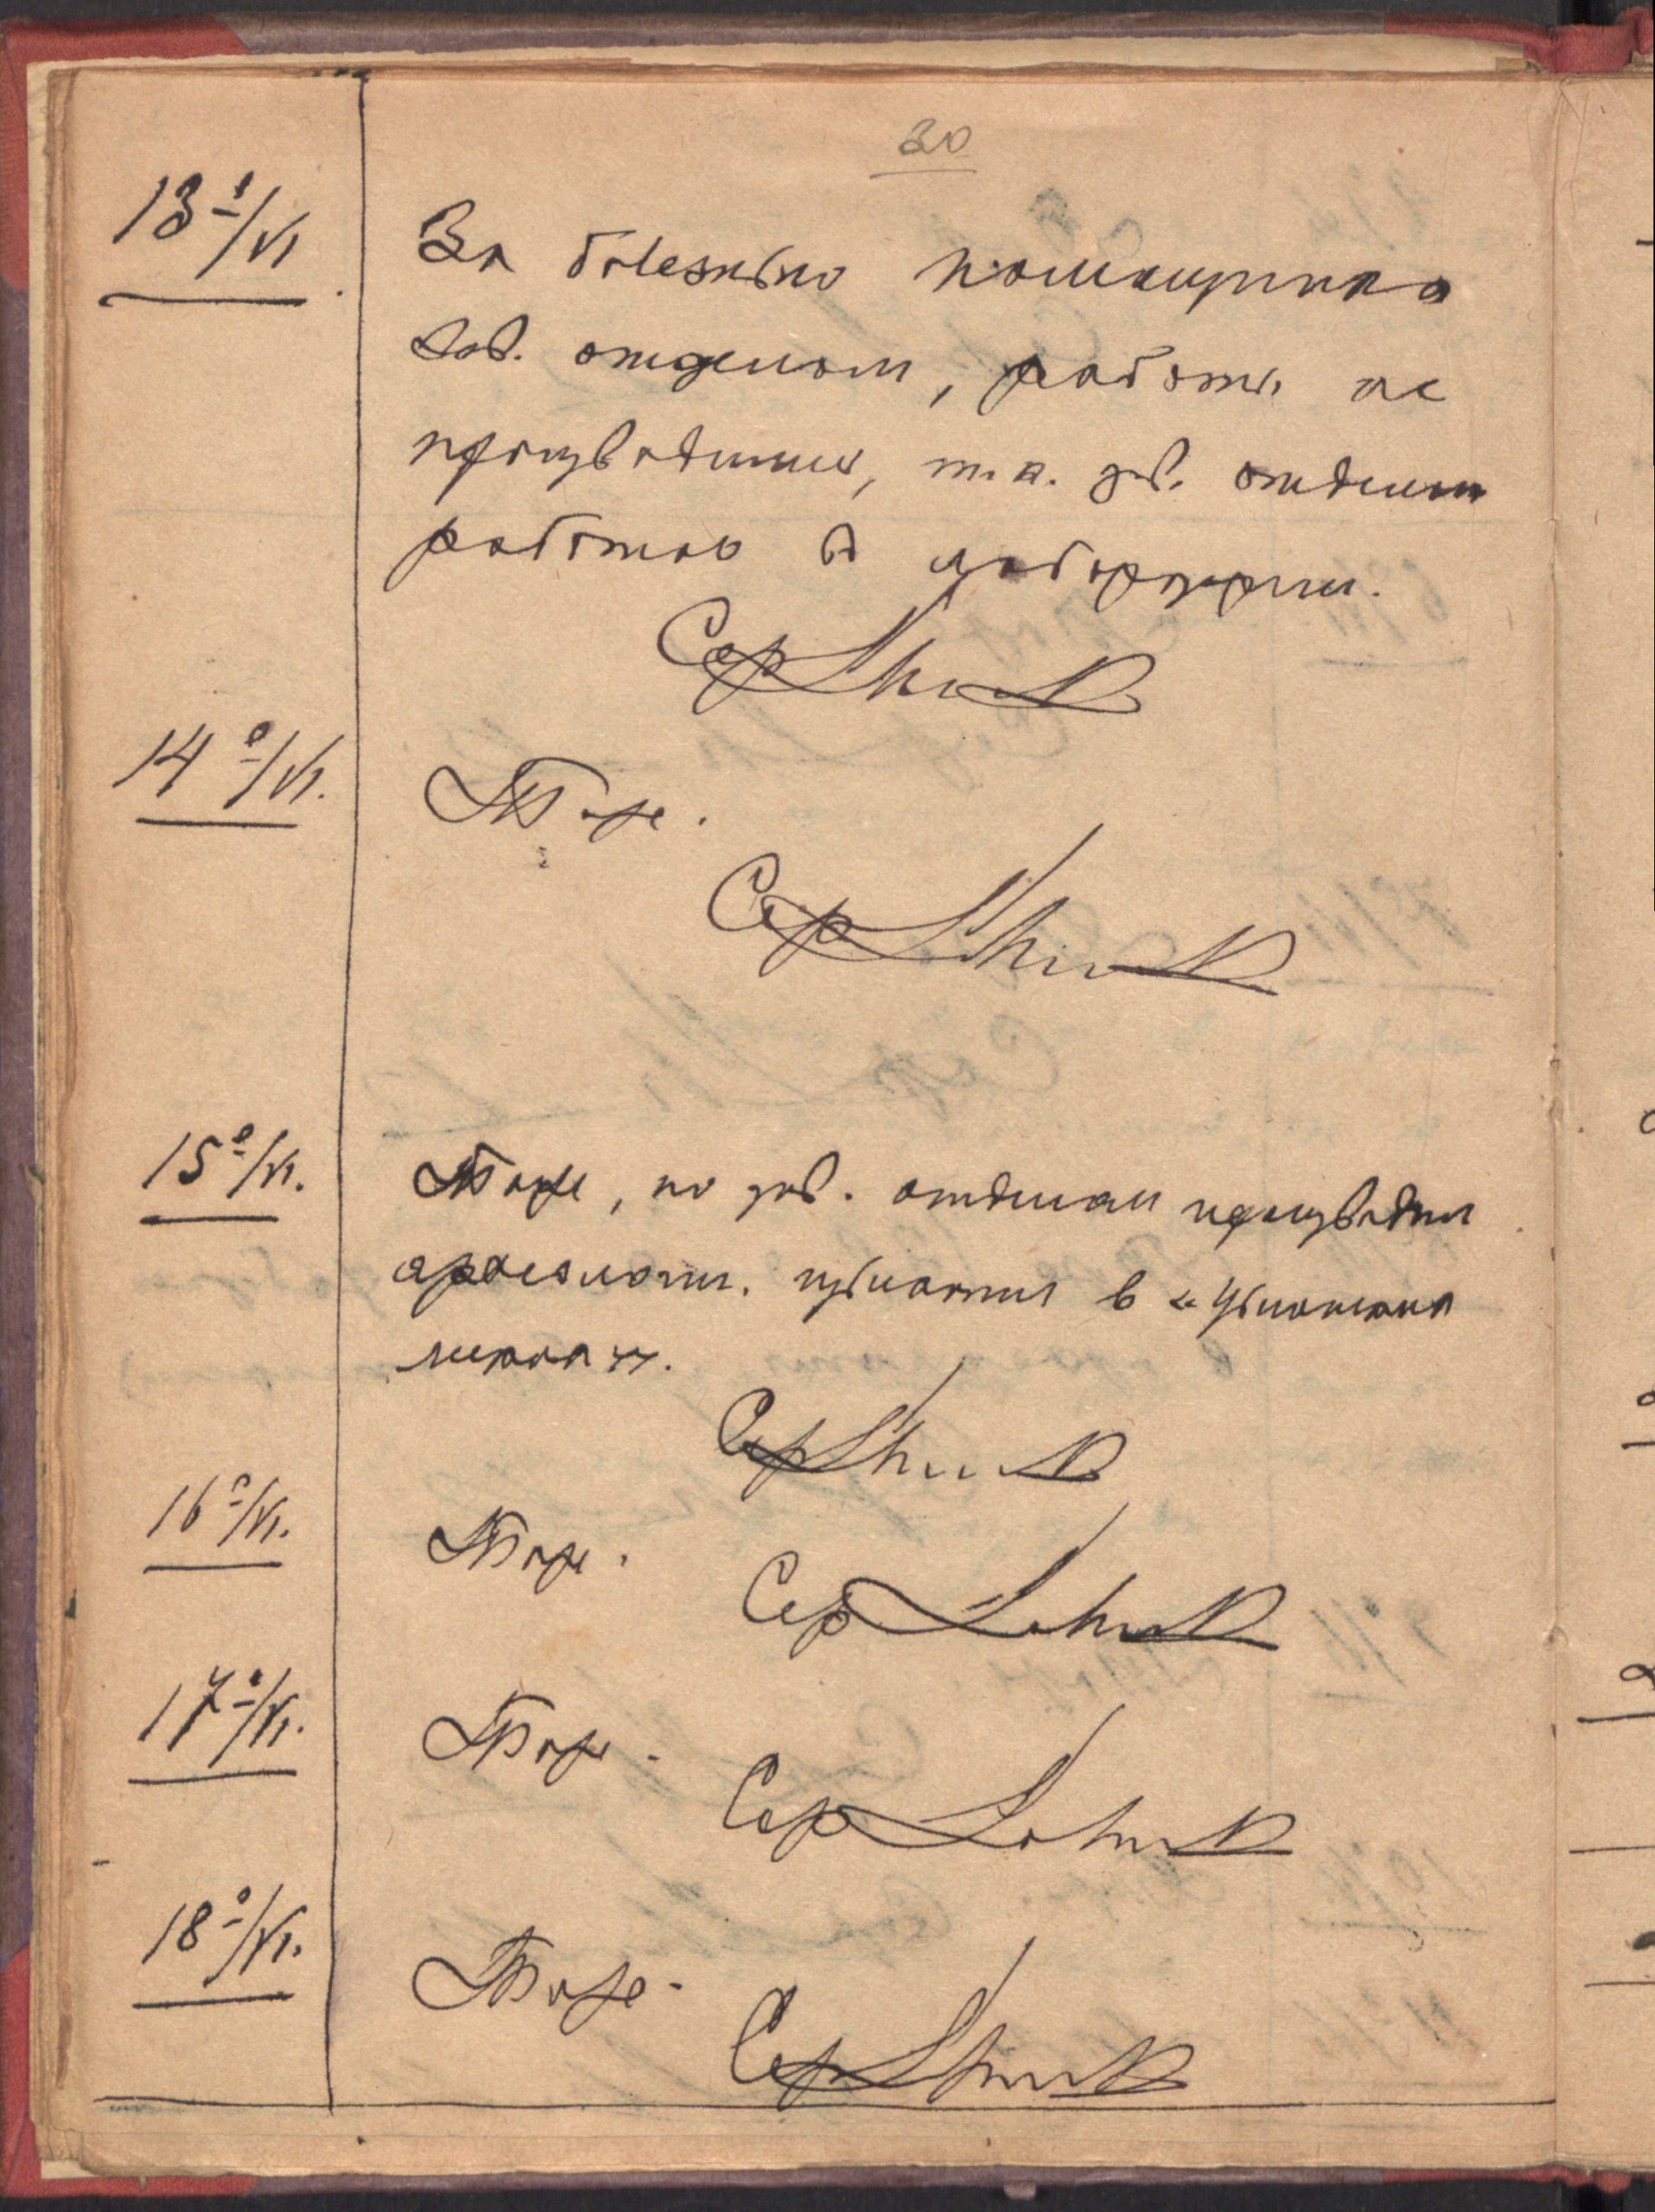 30
13º/VI За болезнью помощника
зав. отделом, работы не
производились, т.к. зав. отделом
работал в лаборатории.
Сер
14º/VI. Тоже.
Сер
15º/VI. Тоже, но зав. отделом производил
археологич. изыскания в
Сер
16º/VI. Тоже.
Сер
17º/VI. Тоже.
Сер
18º/VI. Тоже.
Сер